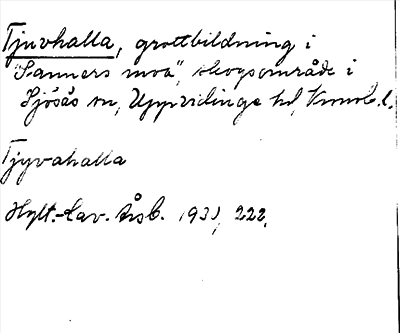 Tjuvhalla, grottbildning i
"Sanners moa", skogsområde i
Sjösås sn, Uppvidinge hd, Kronob. l.
Tjyvahalla
Hylt.-Cav. Årsb. 1931, 222.